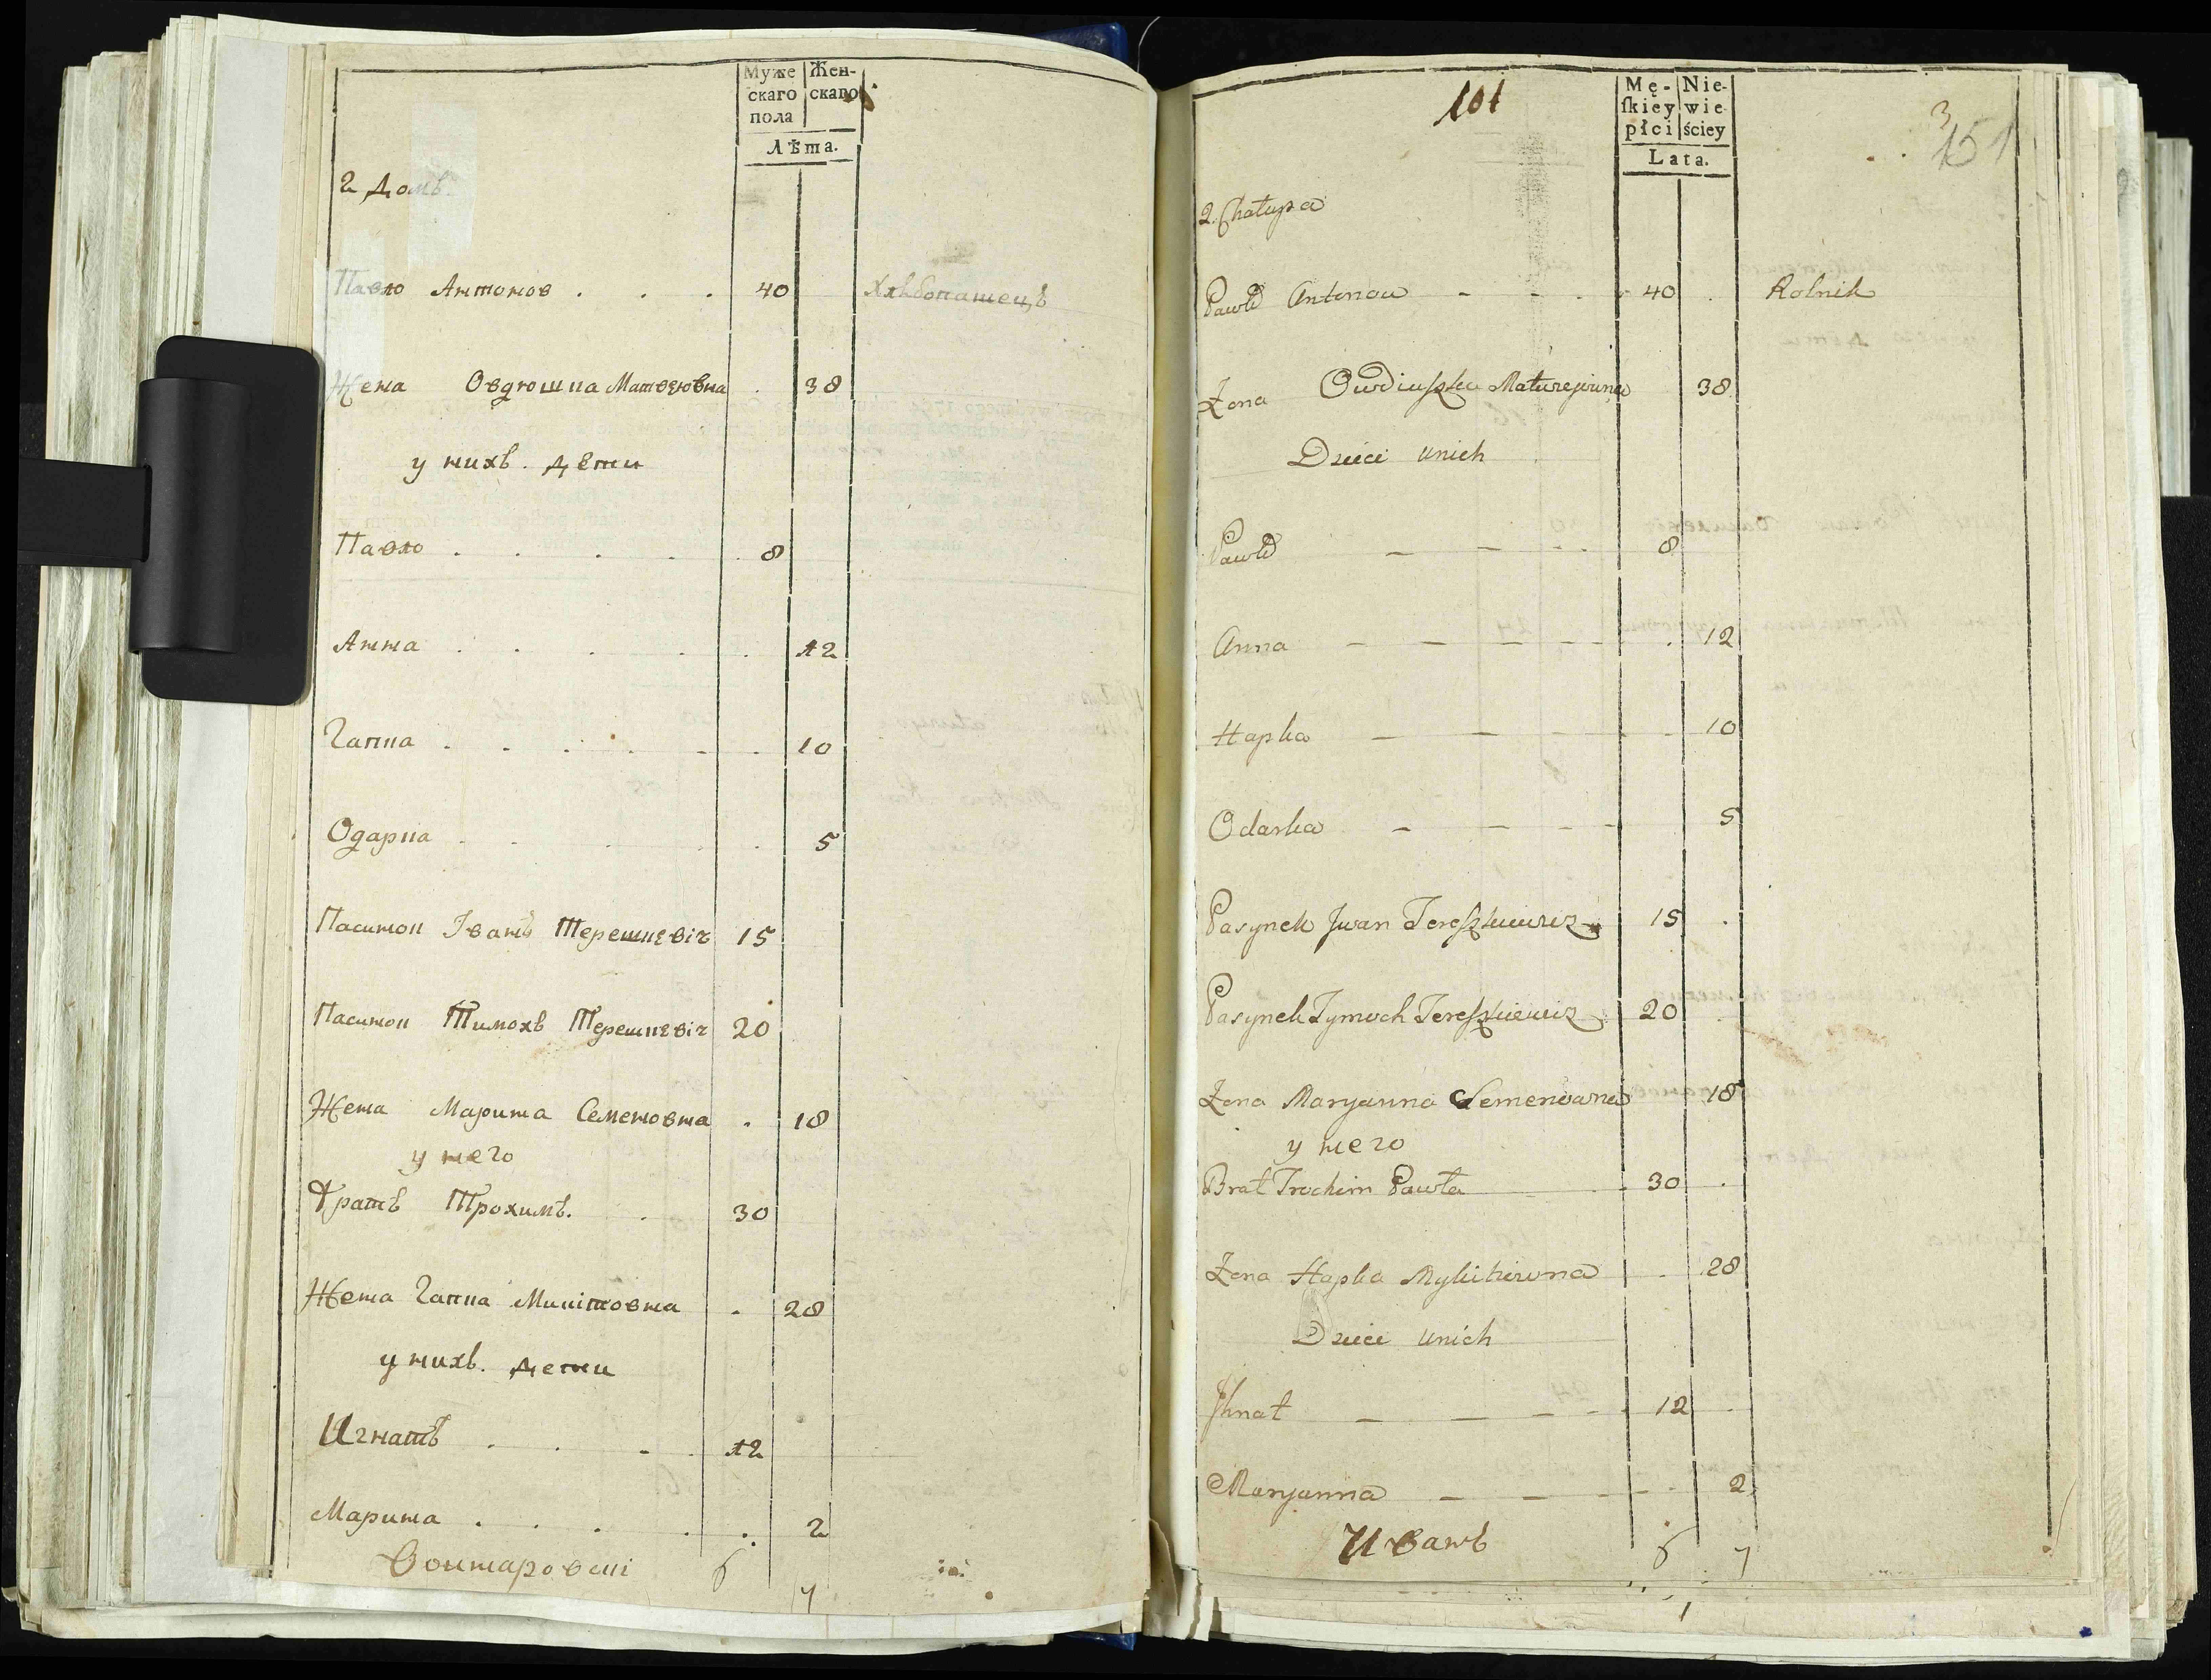 Муже
скаго
пола
Жен-
скаго
Лѣта.
2 Домъ.
Павло Антонов . . . 40 Хлѣбопашецъ
Жена Овдюшка Матвеювна . 38
у нихъ. дѣти
Павло . . . . . 8
Анна . . . . . 12
Гапка . . . . . . 10
Одарка . . . . . 5
Пасинок Іванъ Терешкевіч 15
Пасинок Тимохъ Терешкевіч 20
Жена Марина Семеновна . 18
у него
Братъ Трохимъ. . 30
Жена Гапка Микітовна . 28
у нихъ. дети
Игнатъ . . . . 12
Марина . . . . . 2
6 7
101
Mę-
ſkiey
płci
Nie-
wie
ściey
Lata.
151
2. Chałupa
Pawło Antonow - - - 40 . Rolnik
Żona Owdiuszka Matwejewna 38
Dzieci unich
Pawło - - - . 8
Anna - - - - - . 12
Hapka - - - - - 10
Odarka - - - - 5
Pasynek Jwan Tereszkiewicz 15 .
Pasynek Tymoch Tereszkiewicz 20 .
Żona Maryanna Semenowna 18
у него
Brat Trochim Pawła 30 .
Żona Hapka Mykitiewna . 28
Dzieci unich
Jhnat - - - - 12 .
Maryanna - - - - 2
Иванъ 6 7